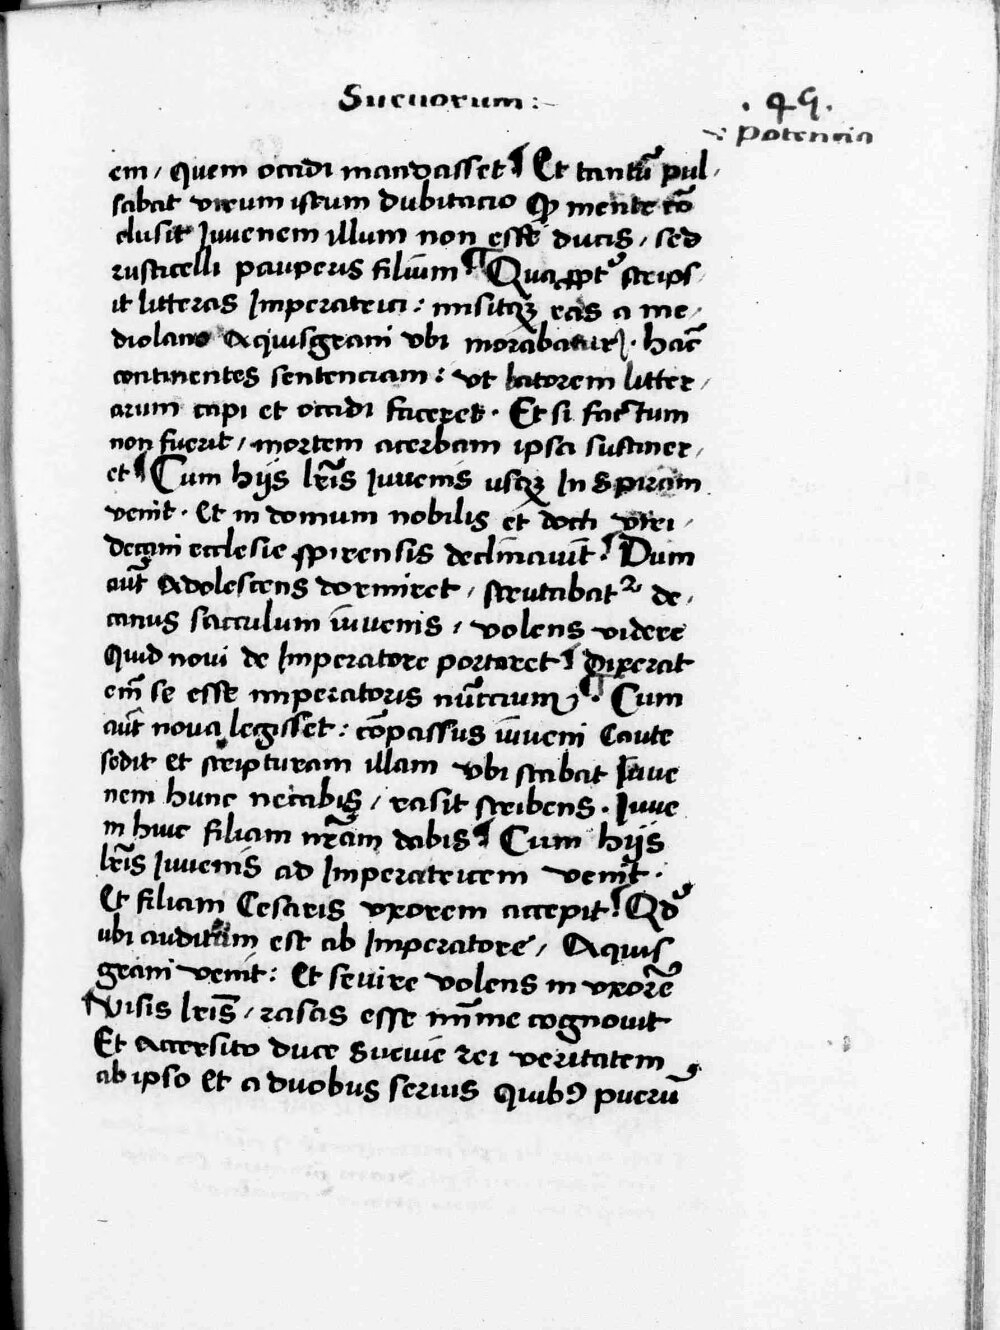 Sueuorum :~
. 49 .
~: potencia
em / quem occidi mandasset ¶ Et tantū pul /
sabat virum istum dubitacio qꝫ mente cō
clusit Juvenem illum non esse ducis / sed
rusticelli pauperis filium ¶ Quaꝓptʾ scrips /
it litteras Imperatrici : misitqꝫ eas a me /
diolano Aquisgrani vbi morabatur . hāc
continentes sentenciam : vt latorem litter /
arum capi et occidi faceret . Et si factum
non fuerit / mortem acerbam ipsa sustiner /
et ¶ Cum hijs lr̄is Juvenis usqꝫ In Spiram
venit . Et in domum nobilis et docti viri /
decani ecclesie spirensis declīnauit ¶ Dum
aūt Adolescens dormiret / scrutabatʳ de /
canus sacculum iuuenis / volens videre
Quid novi de Imperatore portaret ¶ Dixerat
em̄ se esse imperatoris nūccium ¶ Cum
aūt nova legisset : cōpassus iuueni Caute
sedit et scripturam illam vbi scabat Juue
nem hunc necabis / rasit scribens . Juue
ni huic filiam nr̄am dabis ¶ Cum hijs
lr̄is Juvenis ad Imperatricem venit .
Et filiam Cesaris vxorem accepit ¶ Qd̄
ubi auditum est ab Imperatore / Aquis
grani venit : Et sevire volens in vxorē
Visis lr̄is / rasas esse mīme cognovit
Et Accersito duce Suevie rei veritatem
ab ipso et a duobus servis quibꝰ puerū